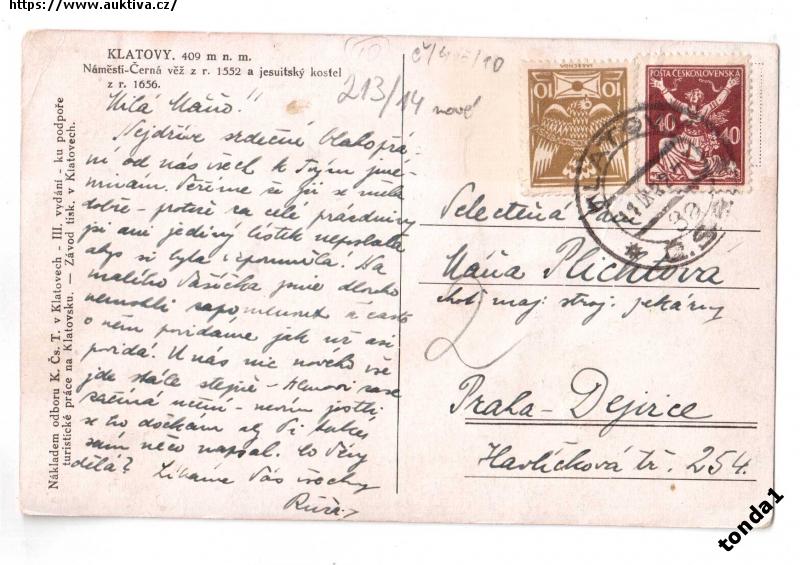 https://www.auktiva.cz/
KLATOVY. 409 m n. m.
Náměstí-Černá věž z r. 1552 a jesuitský kostel
z r. 1656.
213/14 nové
Milá Máňo!!
Nejdříve srdečné blahopřá-
ní od nás všech k Tvým jme-
ninám. Těšíme se jsi se měla
dobře – protože za celé prázdniny
jsi ani jediný lístek neposlala
abys si byla vzpomněla! Na
malého Vašíčka jsme dlouho
nemohli zapomenout a často
o něm povídáme jak už asi
povídá. U nás nic nového vše
jde stále stejně – zase
začíná – nevím jestli
se ho dočkám aby Ti také
sám něco napsal. Co Věry
dělá? Líbáme Vás všechny
Růža
Nákladem odboru K. Čs. T. v Klatovech - III. vydání - ku podpoře
turistické práce na Klatovsku. — Závod tisk. v Klatovech.
10 10
POŠTA ČESKOSLOVENSKÁ
40 40
KLATOVY
Velectěná paní
Máňa Plichtova
choť maj. stroj. pekárny
2
Praha - Dejvice
Havlíčková tř. 254.
tonda1